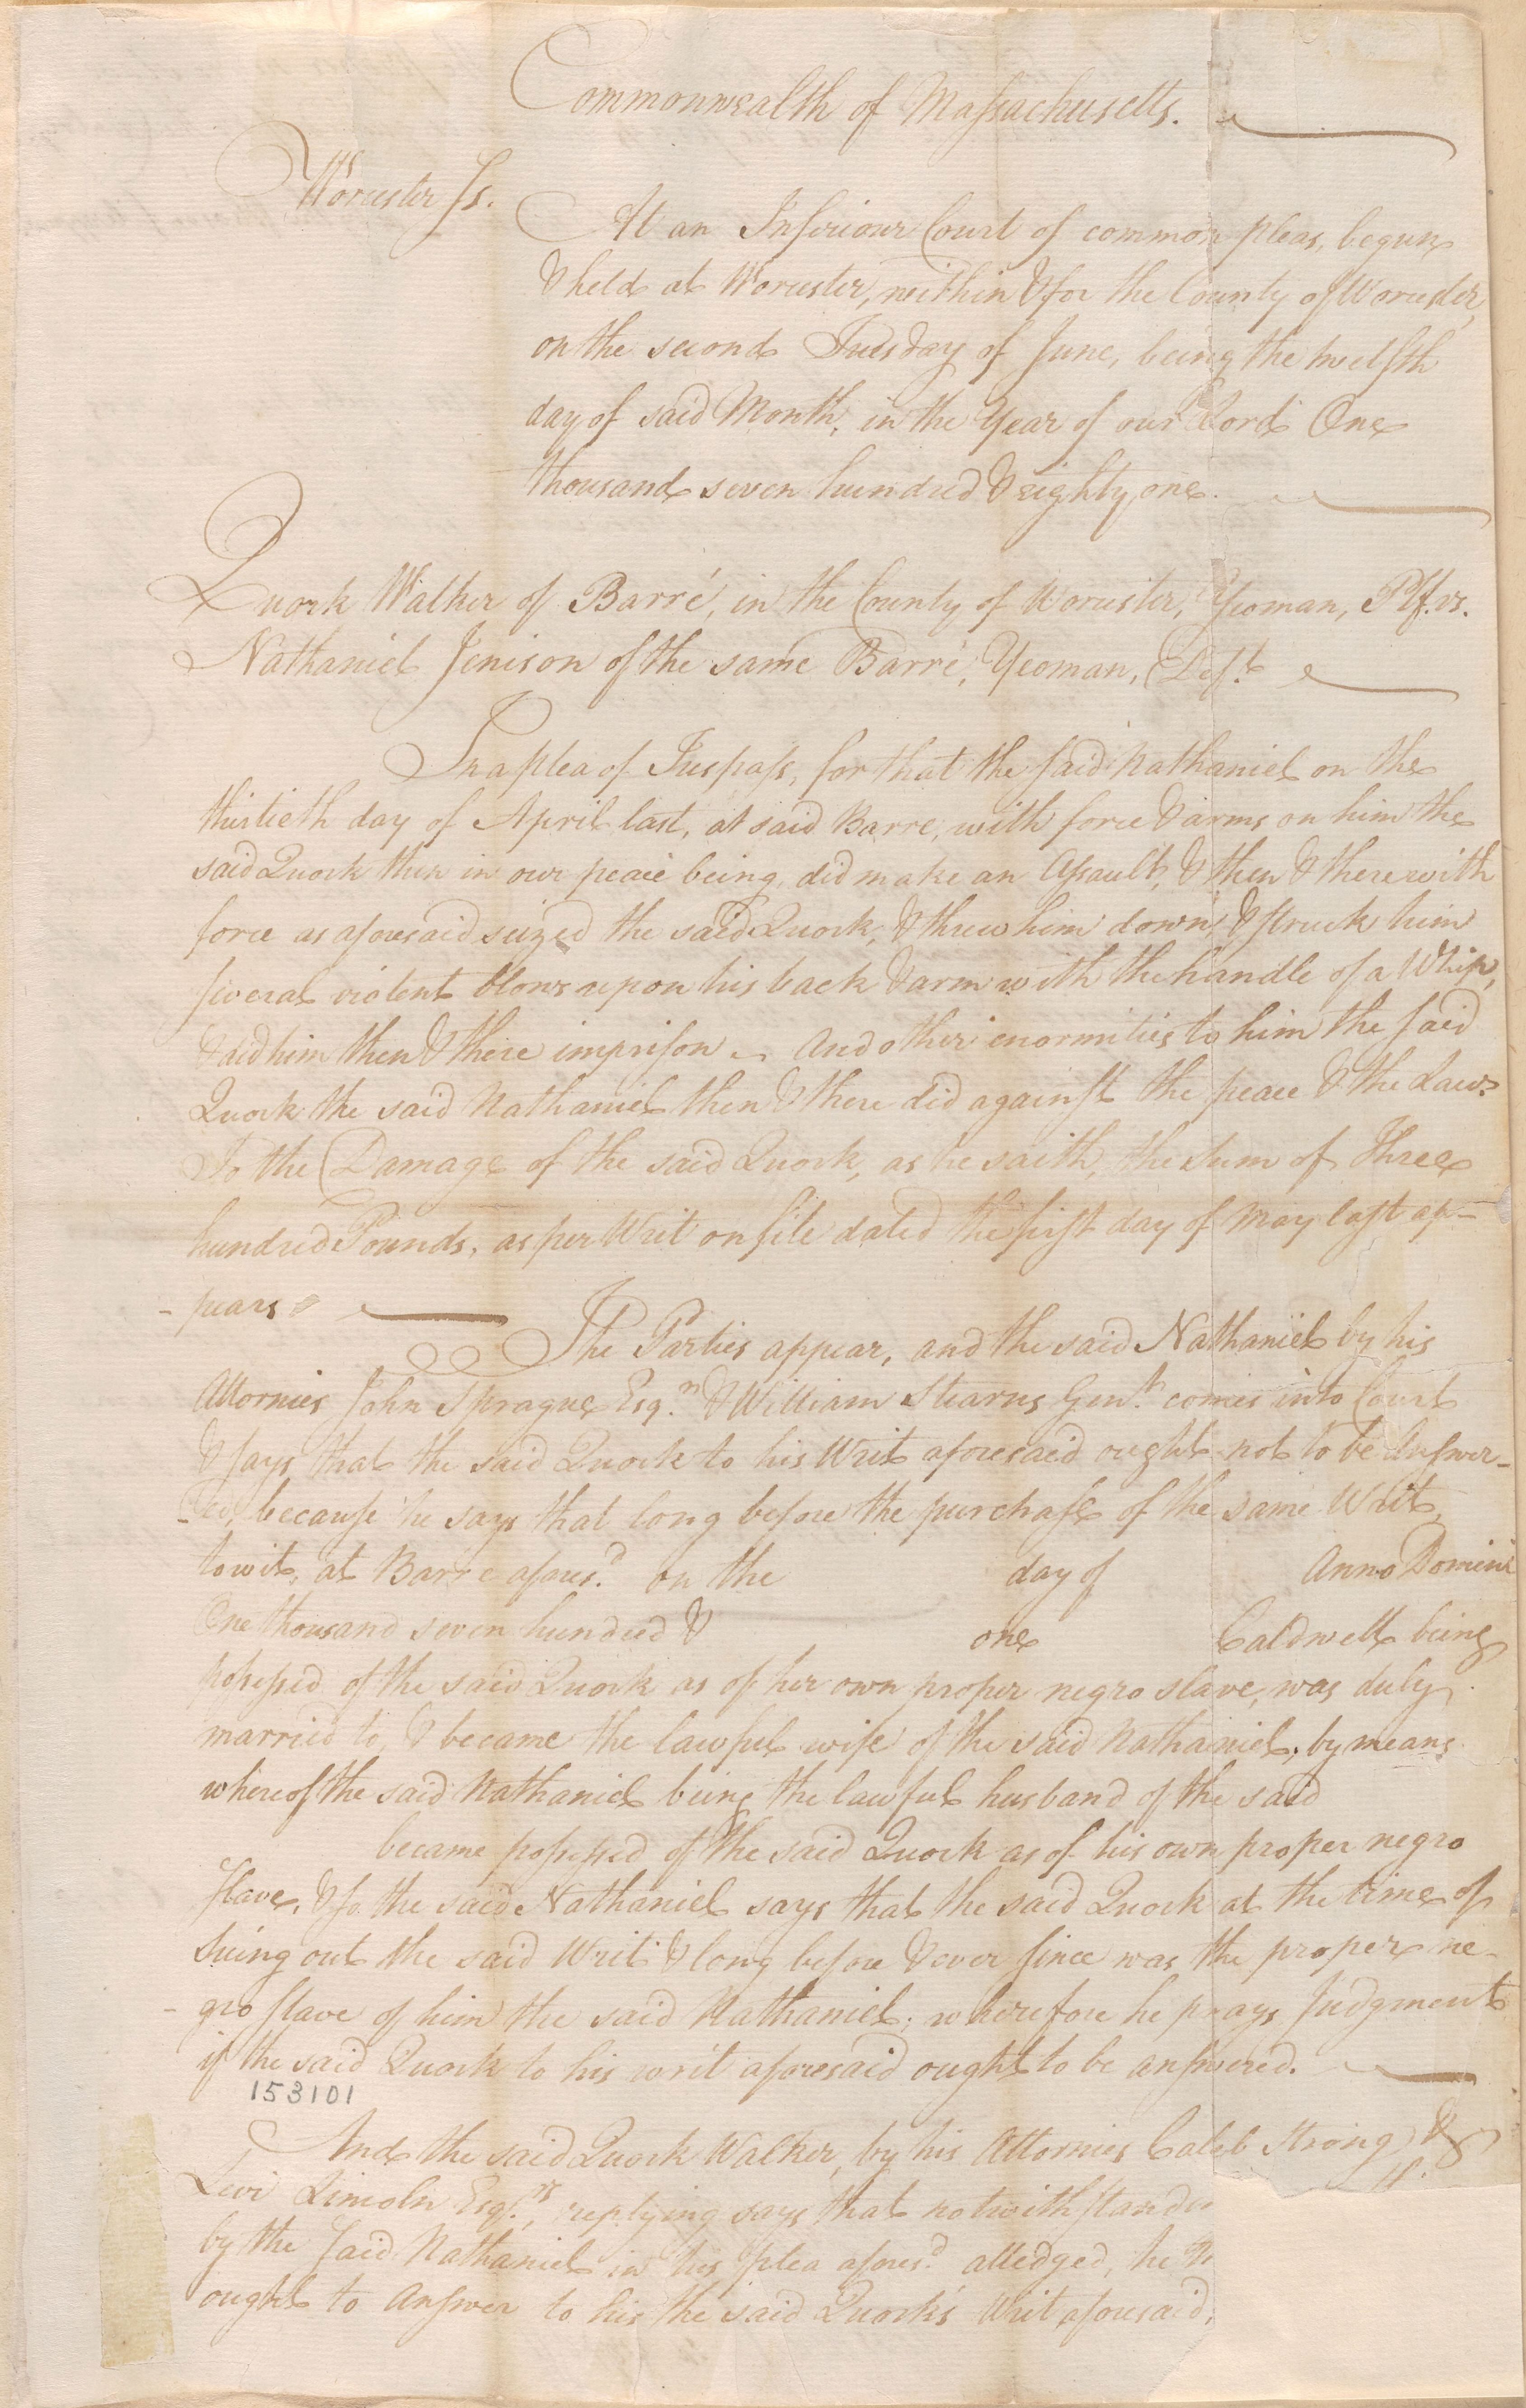 Commonwealth of Massachusetts.
Worcester ss.
At an Inferiour Court of common pleas, begun
& held at Worcester, within & for the County of Worcester,
on the second Tuesday of June, being the twelfth
day of said Month, in the Year of our Lord One
thousand seven hundred & eighty one.
Quork Walker of Barré, in the County of Worcester, Yeoman, Plf. vs.
Nathaniel Jenison of the same Barré, Yeoman, Deft.
In a plea of Trespass, for that the said Nathaniel on the
thirtieth day of April last, at said Barre, with force & arms, on him the
said Quork then in our peace being, did make an Assault, & then & there with
force as aforesaid seized the said Quork, & threw him down, & struck him
several violent blows upon his back & arm with the handle of a Whip,
& did him then & there imprison and other enormities to him the said
Quork the said Nathaniel then & there did against the peace & the Law.
To the Damage of the said Quork, as he saith, the Sum of Three
hundred Pounds, as per Writ on file dated the first day of May last ap-
-pears
The Parties appear, and the said Nathaniel by his
Attornies John Sprague Esqr. & William Stearns Gent. comes into Court
& says that the said Quork to his Writ aforesaid ought not to be Answer-
-ed, because he says that long before the purchase of the same Writ,
to wit, at Barre afores.d on the day of Anno Domini
One thousand seven hundred & one Caldwell being
possessed of the said Quork as of her own proper negro slave, was duly
married to, & became the lawful wife of the said Nathaniel, by means
whereof the said Nathaniel being the lawful husband of the said
became possessed of the said Quork as of his own proper negro
slave, & so the said Nathaniel says that the said Quork at the time of
suing out the said Writ & long before & ever since was the proper ne-
-gro slave of him the said Nathaniel; wherefore he prays Judgment
if the said Quork to his writ aforesaid ought to be answered.
153101
And the said Quork Walker, by his Attornies Caleb Strong &
Levi Lincoln Esqrs., replying says that notwithstandi
by the said Nathaniel in his plea afores.d alledged, he
ought to Answer to his the said Quork's Writ aforesaid,